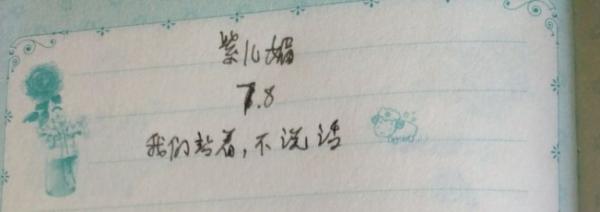 紫儿媚
7.8
我们站着,不说话